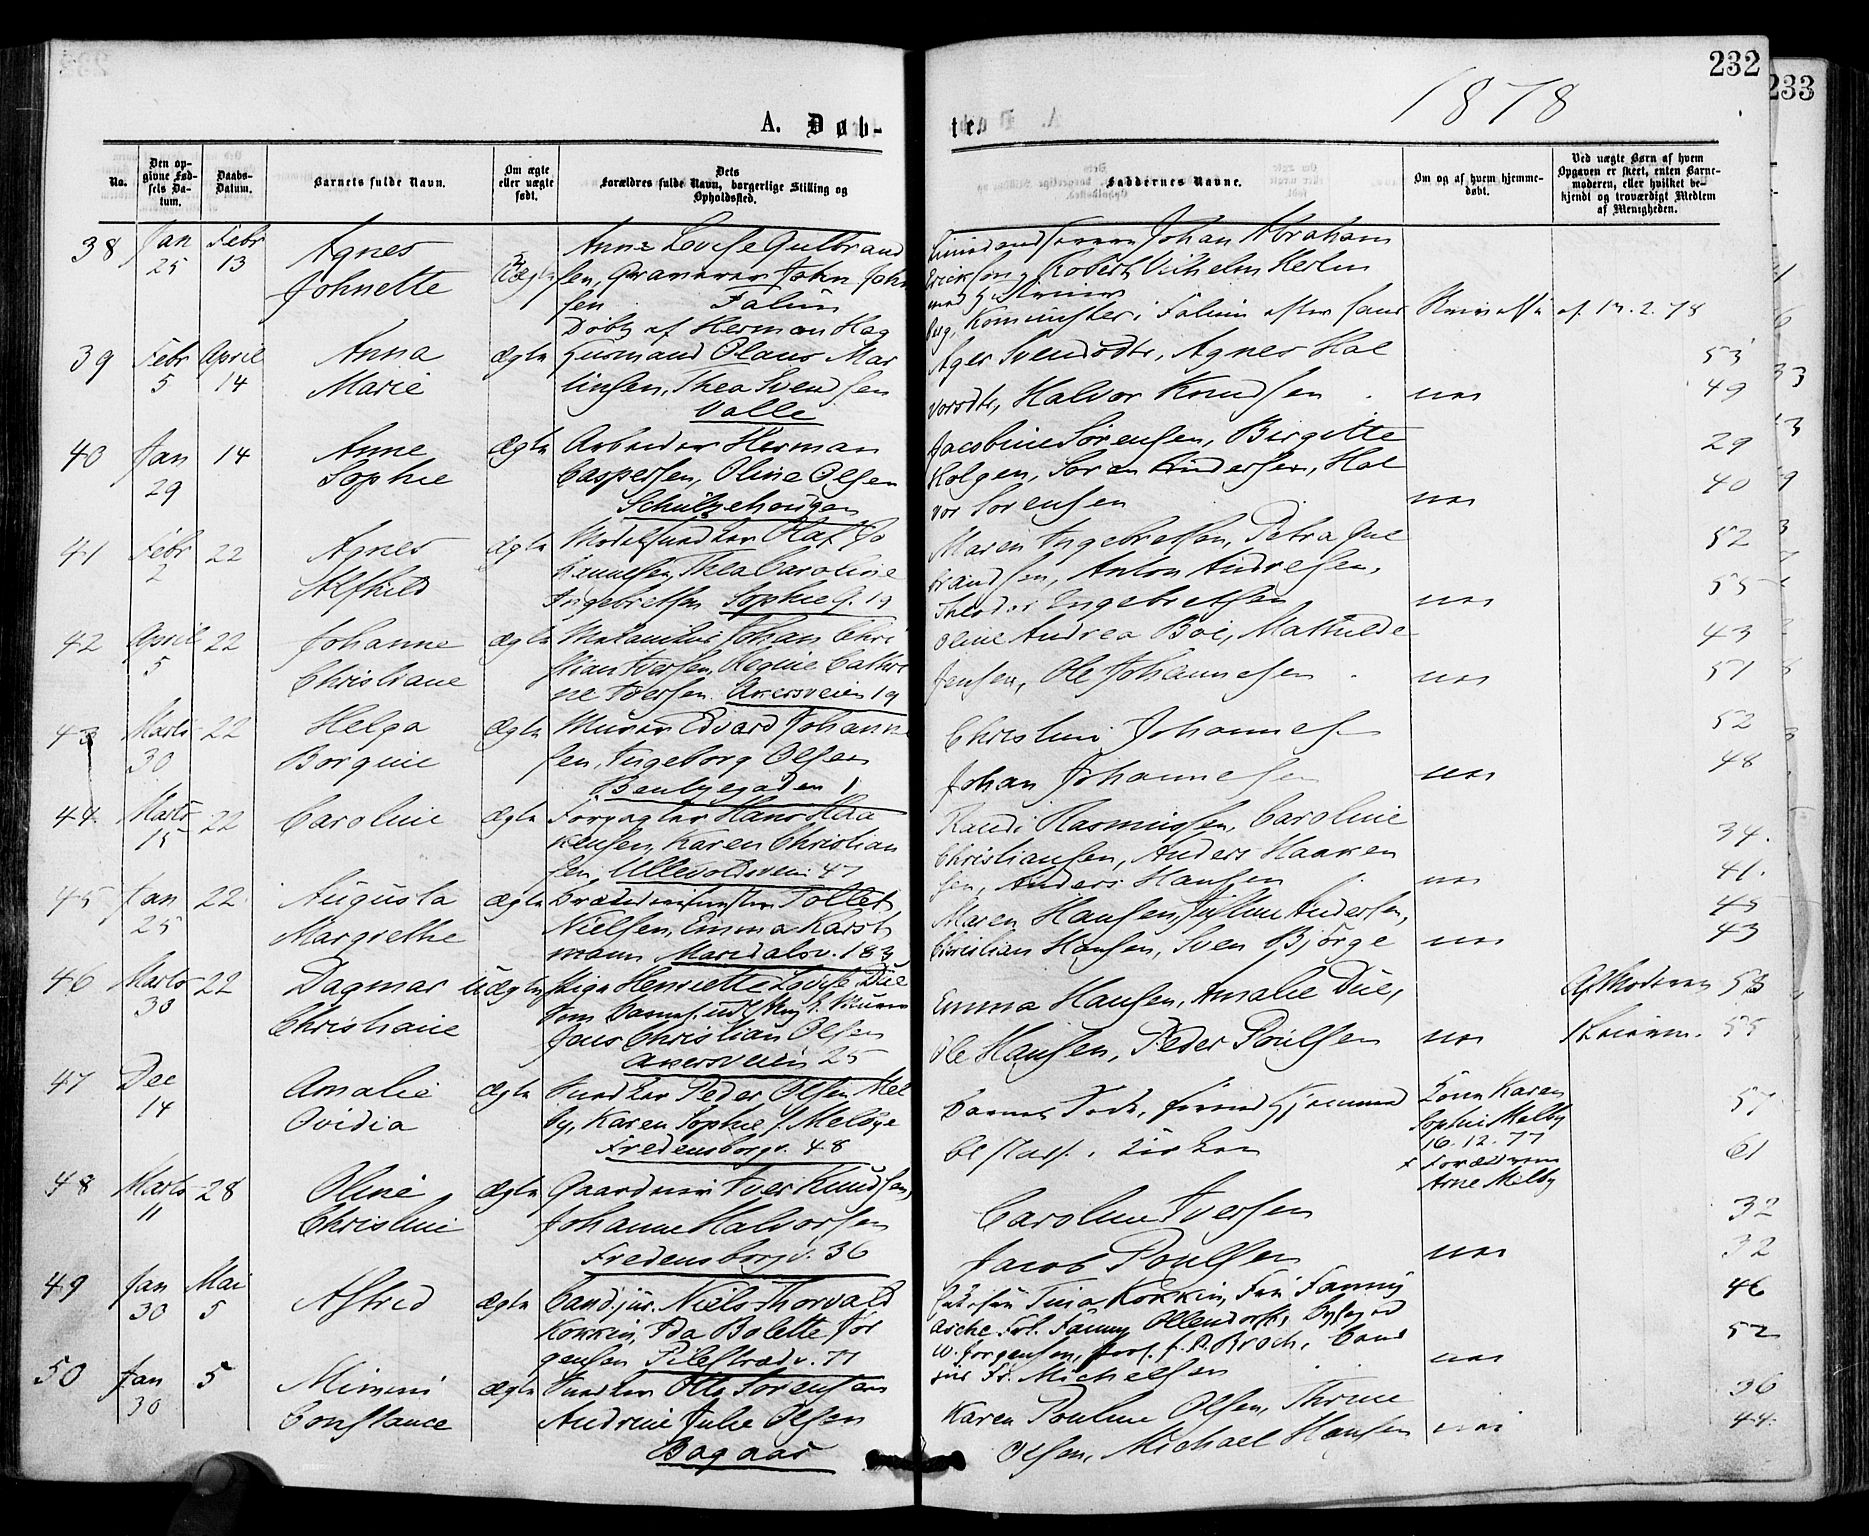 232
233
1878
A. Døb-
te.
No.
Den op-
givne Fød-
sels Da-
tum.
Daabs-
Datum.
Barnets fulde Navn.
Om ægte
eller uægte
født.
Dets
Forældres fulde Navn, borgerlige Stilling og
Opholdssted.
Faddernes Navne.
Om og af hvem hjemme-
døbt.
Ved uægte Børn af hvem
Opgaven er skeet, enten Barne-
moderen, eller hvilket be-
kjendt og troværdigt Medlem
af Menigheden.
38
Jan
25
Febr
13
Agnes
Johnette
Anne Lovise Gulbrand
sen, John John
sen Falun
Døbt af Herman Hag
Johan Abraham
Robert Vilhelm
berg, Komminister i Falun efter hans
af 17.2.78
39
Febr
5
April
14
Anna
Marie
ægte
Husmand Olaus Mar
tinsen, Thea Svendsen
Valle
Svendsdtr, Agnes Hal
vorsdtr, Halvor Knudsen
nei
53
49
40
Jan
29
14
Anne
Sophie
ægte
Arbeider Herman
Caspersen, Oline Olsen
Schultzehougen
Jacobine Sørensen, Birgitte
Holgen, Søren Andersen, Hal
vor Sørensen
nei
29
40
41
Febr
2
22
Agnes
Alfhild
ægte
Modelsnedker Olaf Jo
hannesen, Thea Caroline
Ingebretsen Sophie G. 19
Maren Ingebretsen, Petra Gul
brandsen, Anton Andresen,
Theodor Ingebretsen
nei
52
55
42
April
5
22
Johanne
Christiane
ægte
Johan Chri
stian Iversen, Regine Cathri
ne Iversen. Akersveien 19
Oline Andrea Boe, Mathilde
Jensen, Ole Johannesen
nei
43
51
43
Marts
30
22
Helga
Borgine
ægte
Murer Edvard Johanne
sen, Ingeborg Olsen
1
Christine Johannes
Johan Johannesen
nei
52
48
44
Marts
15
22
Caroline
ægte
Forpagter Hans
kensen, Karen Christian
sen, Ullevoldsvei 47
Randi Rasmussen, Caroline
Christiansen, Anders Haaken
sen, Anders Hansen
nei
34.
41.
45
Jan
25
22
Augusta
Margrethe
ægte
Nielsen, Emma Karst
mann Maridalsv. 183
Maren Hansen, Justine Andersen,
Christian Hansen, Sven Bjørge
nei
45
43
46
Marts
30
22
Dagmar
Christiane
Uægte
Pige Henriette Lovise Due
som Barnef. udl. Murer
Jens Christian Olsen
Akersveien 25
Emma Hansen, Amalie Due,
Ole Hansen, Peder Poulsen
nei
Af Moderen
58
55
47
Dec
14
Amalie
Ovidia
ægte
Snedker Peder Olsen Mel
by, Karen Sophie f. Melbye
Fredensborgv. 48
Barnets Daab, Hjemmed
Karen
Sophie Melby
16.12.77
Forældrene
Arne Melby
57
61
48
Marts
11
28
Oline
Christine
ægte
Gaardeier Iver Knudsen,
Johanne Halvorsen
Fredensborgv. 36
Caroline Iversen
Jacob Poulsen
nei
32
32
49
Jan
30
Mai
5
Astrid
ægte
Cand. jur. Niels Thorvald
Korkin, Ida Bolette Jør
gensen Pilestrædv. 77
Tina Korkin, Fru Fanny
Asche Frk. Fanny Ollendorff,
W. Jørgensen, prof. J. P. Broch, Cand
jur Fr. Michelsen
nei
46
52
50
Jan
30
5
Mimmi
Constance
ægte
Snedker Otto Sørensen
Andrine Julie Olsen
Bagaas
Karen Pouline Olsen, Thrine
Olsen, Michael Hansen
nei
36
44